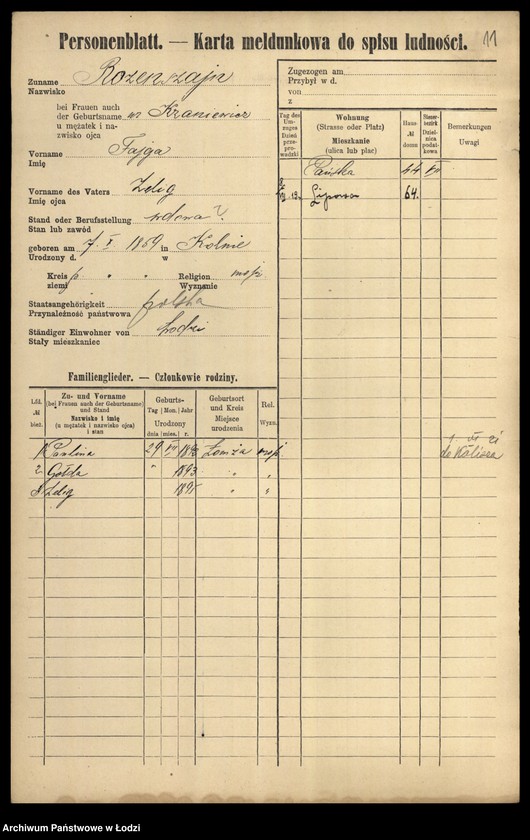 Personenblatt. — Karta meldunkowa do spisu ludności.
11
Zuname
Nazwisko
Rozenszajn
bei Frauen auch
der Geburtsname
u mężatek i na-
zwisko ojca
Kraniewicz
Vorname
Imię
Fajga
Vorname des Vaters
Imię ojca
Zelig
Stand oder Berufsstellung
Stan lub zawód
wdowa ?
geboren am 7 X 1869 in Kolnie
Urodzony d. w
Kreis
ziemi
" "
Religion
Wyznanie
mojż
Staatsangehörigkeit
Przynależność państwowa
polska
Ständiger Einwohner von
Stały mieszkaniec
Łodzi
Zugezogen am
Przybył w d.
von
z
Tag des
Um-
zuges
Dzień
prze-
prowadzki
Wohnung
(Strasse oder Platz)
Mieszkanie
(ulica lub plac)
Haus-
№
domu
Steuer-
bezirk
Dziel-
nica
podat-
kowa
Bemerkungen
Uwagi
Pańska 44 VII
19. Lipowa 64.
Familienglieder. — Członkowie rodziny.
Lfd.
№
bież.
Zu- und Vorname
(bei Frauen auch der Geburtsname)
und Stand
Nazwisko i imię
(u mężatek i nazwisko ojca)
i stan
Geburts-
Tag Mon. Jahr
Urodzony
dnia mies. r.
Geburtsort
und Kreis
Miejsce
urodzenia
Rel.
Wyzn.
1 Paulina 29 VII Łomża mojż.
2. Gołda " 1893 " "
3 Zelig 1895 " "
do Kalisza
Archiwum Państwowe w Łodzi